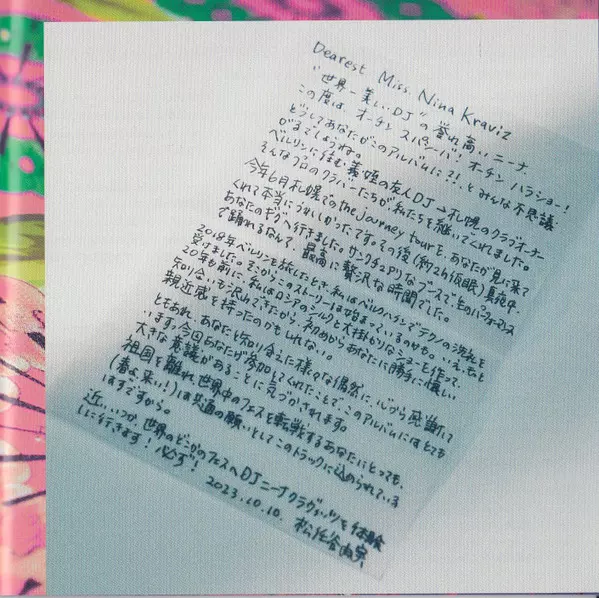 Dearest Miss. Nina Kraviz
"世界一美しいDJ"の誉れ高いニーナ、
この度は、オーチン スパシーバ! オーチン ハラショー!
どうしてあなたがこのアルバムに?!、とみんな不思議
がるでしょうね。
ベルリンに住む義姪の友人DJ→札幌のクラブオーナー
そんなプロのクラバーたちが私たちを継いでくれました。
今年6月札幌でのthe Journey tourを、あなたが見に来て
くれて本当にうれしかったです。その後(約2h仮眠)真夜中、
あなたのギグへ行きました。サンクチュアリなブースで生のパフォーマンス
で踊れるなんて、最高に贅沢な時間でした。
2018年ベルリンを旅したとき、私はベルクハインでテクノの洗礼を
受けました。そこからこのストーリーは始まっているのかも。いえ、もっと
20年も前に、私はロシアのシルクと大掛かりなショーを作って、
知り合いも沢山できたから、初めからあなたに勝手に懐しい
親近感を持ったのかもしれない。
ともあれ、あなたと知り合えた様々な偶然に、心から感謝して
います。今回あなたが参加してくれたことで、このアルバムにはとても
大きな意義があることに気づかされます。
祖国を離れ、世界中のフェスを転戦するあなたにとっても、
(春よ、来い!)は共通の願いとしてこのトラックに込められている
はずですから。
近いいつか、世界のどこかのフェスへDJニーナクラヴィッツを体験
しに行きます! 必ず!
2023.10.10. 松任谷由実